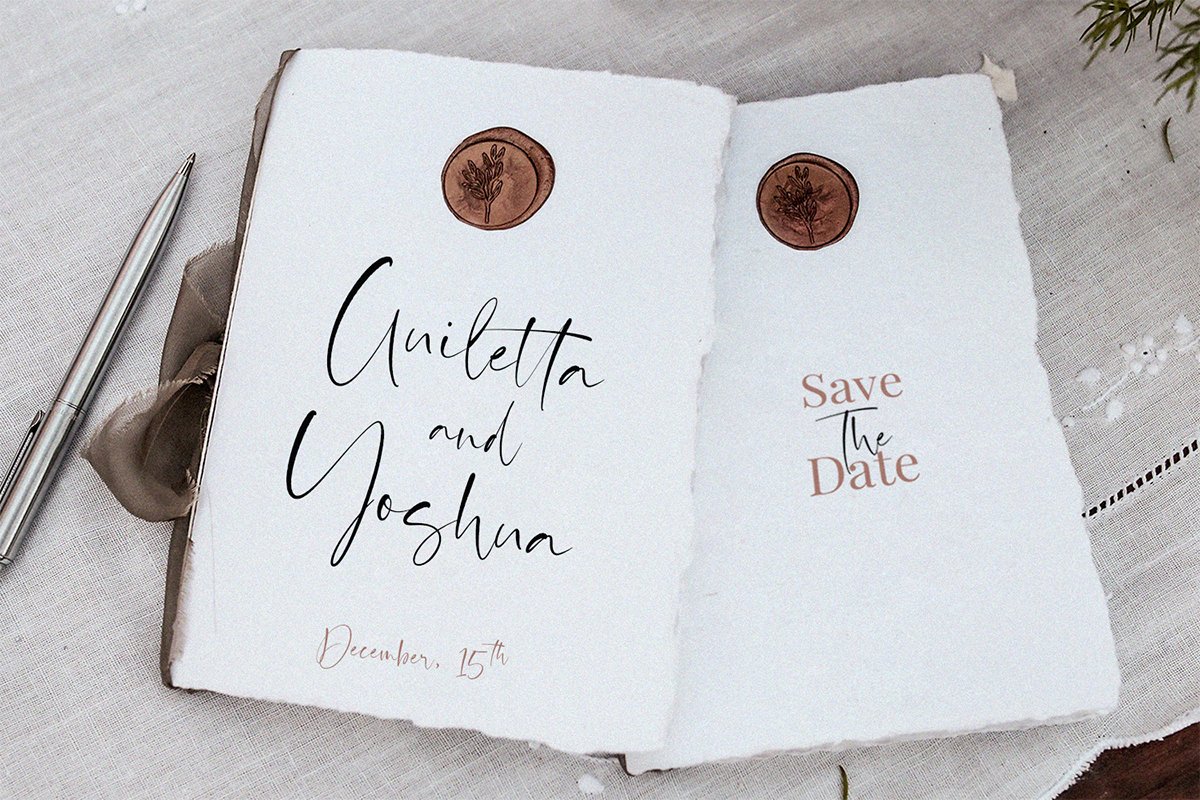 Guiletta
and
Yoshua
December, 15th
Save
The
Date